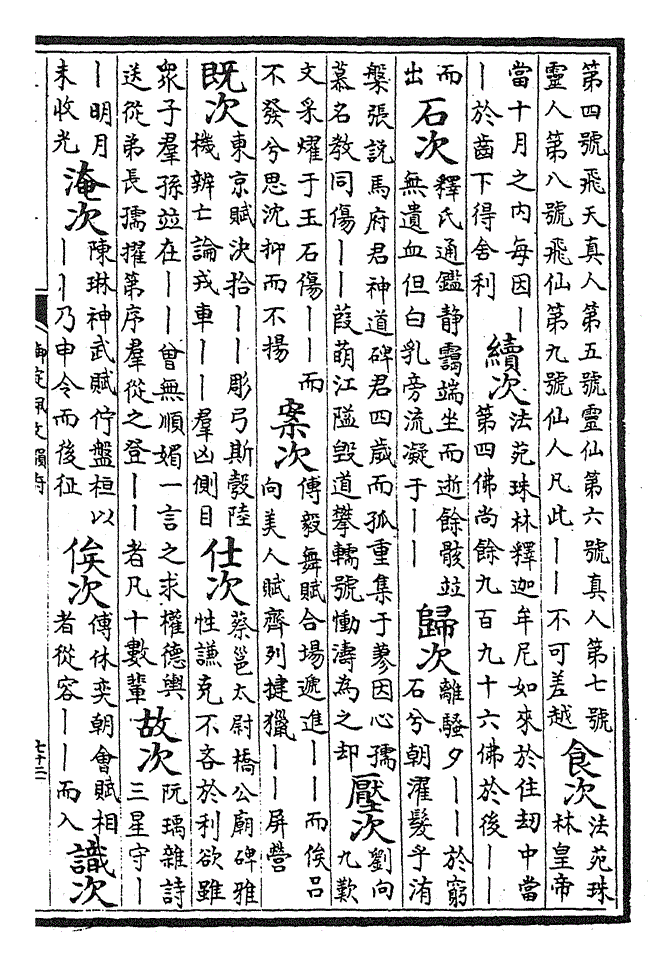 第四號飛天真人第五號靈仙第六號真人第七號
靈人第八號飛仙第九號仙人凡此——不可差越
食次
法苑珠
林皇帝
當十月之內每因—
—於齒下得舍利
續次
法苑珠林釋迦牟尼如來於往劫中當
第四佛尚餘九百九十六佛於後——
而
出
石次
釋氏通鑑靜靄端坐而逝餘骸竝
無遺血但白乳旁流凝于——
歸次
離騷夕——於窮
石兮朝濯髮乎洧
槃張說馬府君神道碑君四歲而孤重集于蓼因心孺
慕名教同傷——葭萌江隘毀道攀轜號慟濤為之却
壓次
劉向
九歎
文采燿于玉石傷——而
不發兮思沈抑而不揚
案次
傅毅舞賦合場遞進——而俟呂
向美人賦齊列揵獵——屏營
既次
東京賦決拾——彫弓斯彀陸
機辨亡論戎車——羣凶側目
仕次
蔡邕太尉橋公廟碑雅
性謙克不吝於利欲雖
衆子羣孫竝在——曾無順媚一言之求權德輿
送從弟長孺擢第序羣從之登——者凡十數輩
故次
阮瑀雜詩
三星守—
—明月
未收光
淹次
陳琳神武賦佇盤桓以
——乃申令而後征
俟次
傅休奕朝會賦相
者從容——而入
識次
御定佩文韻府